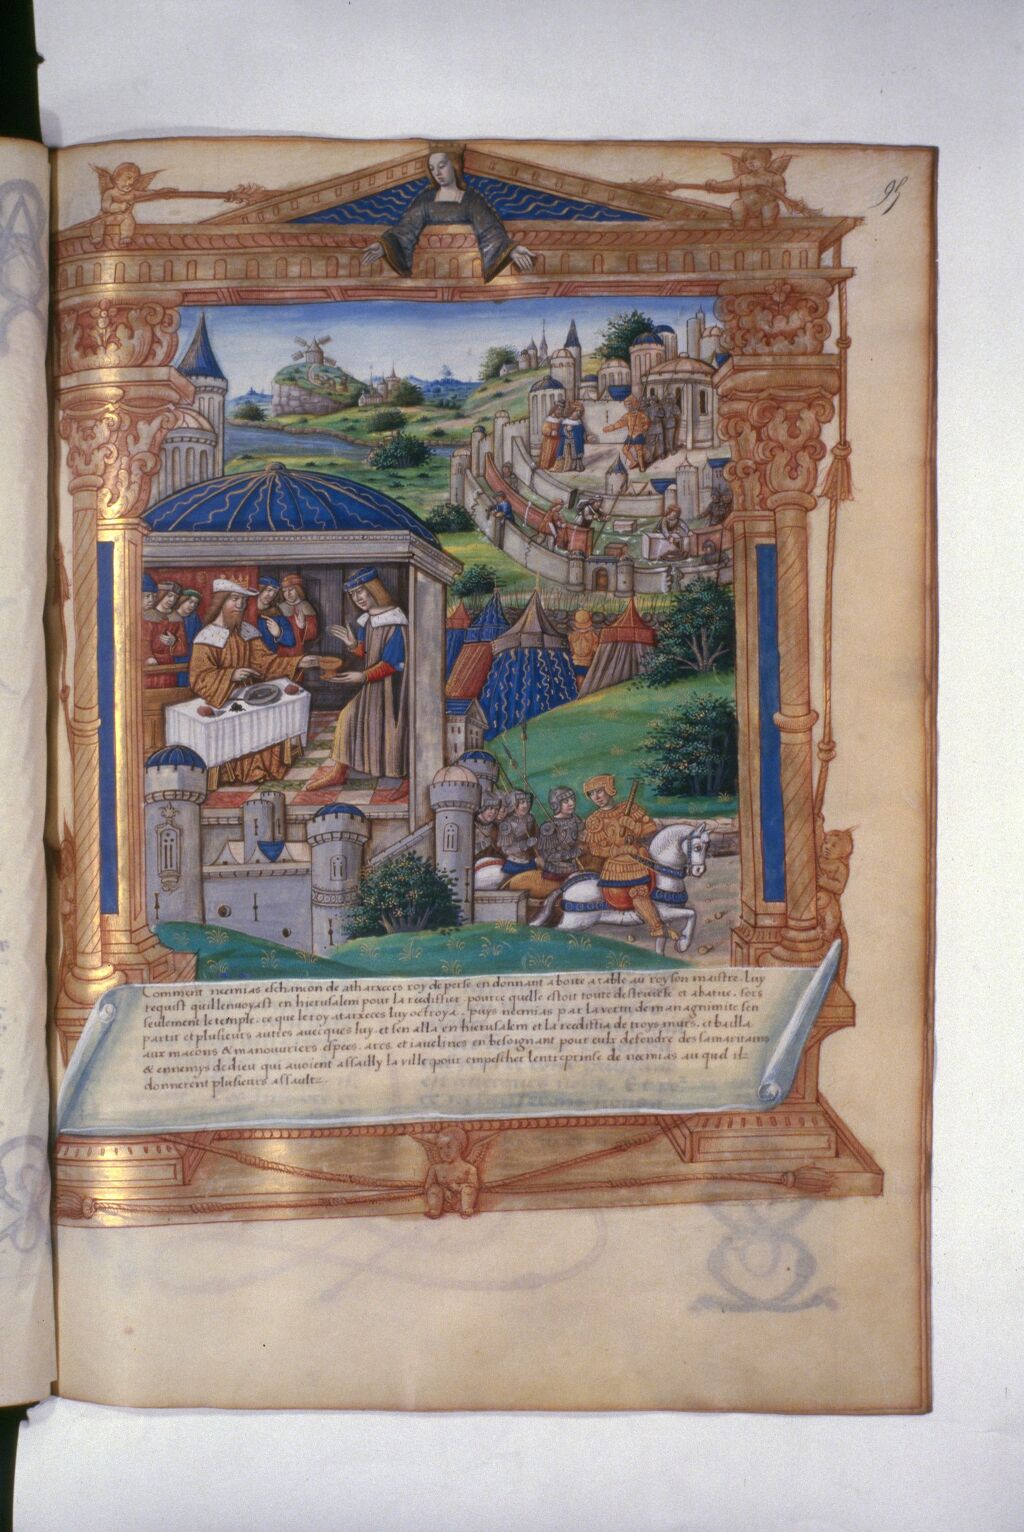 95
Comment neemias eschancon de atharxeces roy de perse en donnant a boire a table au roy son maistre. luy
requist quil lenvoyast en hierusalem pour la reediffier. pource quelle estoit toute destruicte et abatue. fors
seulement le temple. ce que le roy atarxeces luy octroya. puys neemias par la vertu de magnimite sen
partit et plusieurs aultres avecques luy. et sen alla en hierusalem et la reedifia de troys murs. et bailla
aux macons & manouvriers espees. arcs. et iavelines en besoignant pour eulx defendre des samaritains
& ennemys de dieu qui avoient assailly la ville pour empescher lentreprinse de neemias au quel ilz
donnerent plusieurs assaultz